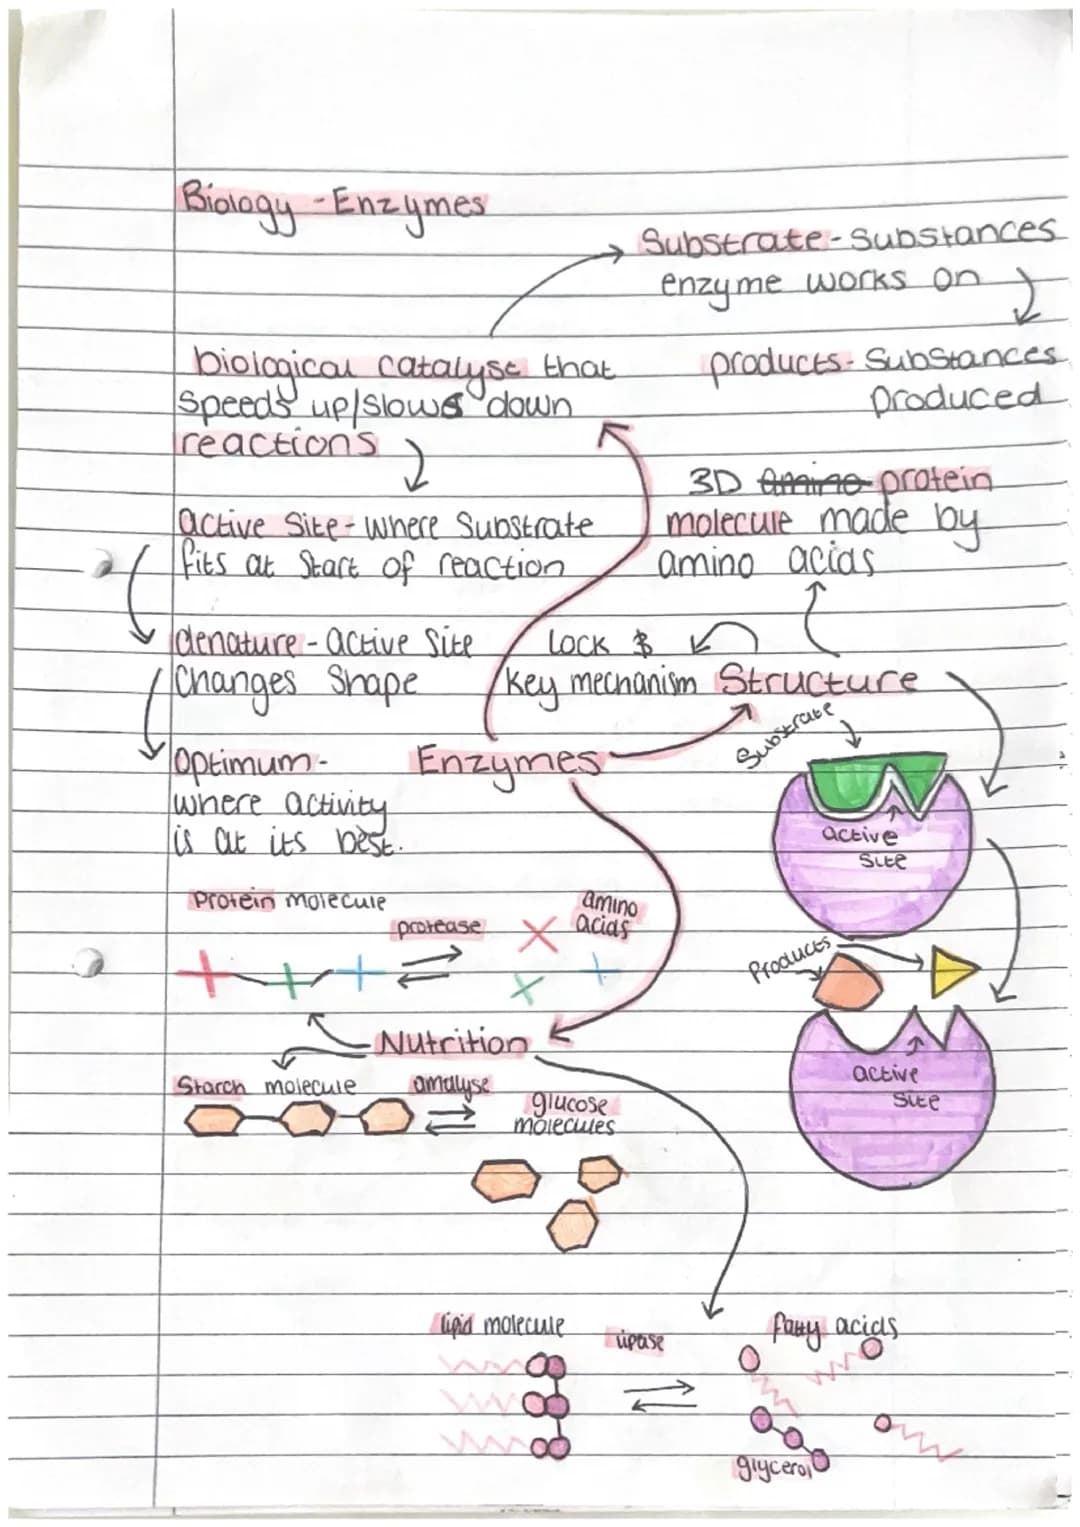 Biology - Enzymes
Substrate - Substances
enzyme works on
products - Substances
produced
biological catalyst that
speeds up/slows down
reactions
3D amino protein
molecule made by
amino acids
active site - where substrate
fits at start of reaction
denature - active site
Changes Shape
Lock &
key mechanism
Structure
Optimum -
where activity
is at its best.
Enzymes
Substrate
active
site
Protein molecule
protease
amino
acids
Products
Nutrition
active
site
Starch molecule
amalyse
glucose
molecules
lipid molecule
lipase
fatty acids
glycerol